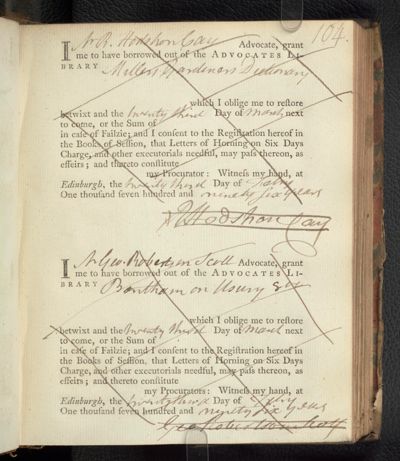 104.
I Mr R. Hodshon Cay Advocate, grant
me to have borrowed out of the ADVOCATES LI-
BRARY Millers Gardeners Dictionary
which I oblige me to restore
betwixt and the twenty third Day of March next
to come, or the Sum of
in case of Failzie; and I consent to the Registration hereof in
the Books of Session, that Letters of Horning on Six Days
Charge, and other executorials needful, may pass thereon, as
effeirs; and thereto constitute
my Procurator: Witness my hand, at
Edinburgh, the twenty third Day of
One thousand seven hundred and ninety six years
R Hodshon Cay
I Mr Geo. Robertson Scott Advocate, grant
me to have borrowed out of the ADVOCATES LI-
BRARY Bentham on Usury
which I oblige me to restore
betwixt and the twenty third Day of March next
to come, or the Sum of
in case of Failzie; and I consent to the Registration hereof in
the Books of Session, that Letters of Horning on Six Days
Charge, and other executorials needful, may pass thereon, as
effeirs; and thereto constitute
my Procurators: Witness my hand, at
Edinburgh, the twenty third Day of
One thousand seven hundred and ninety six years
Geo Robertson Scott